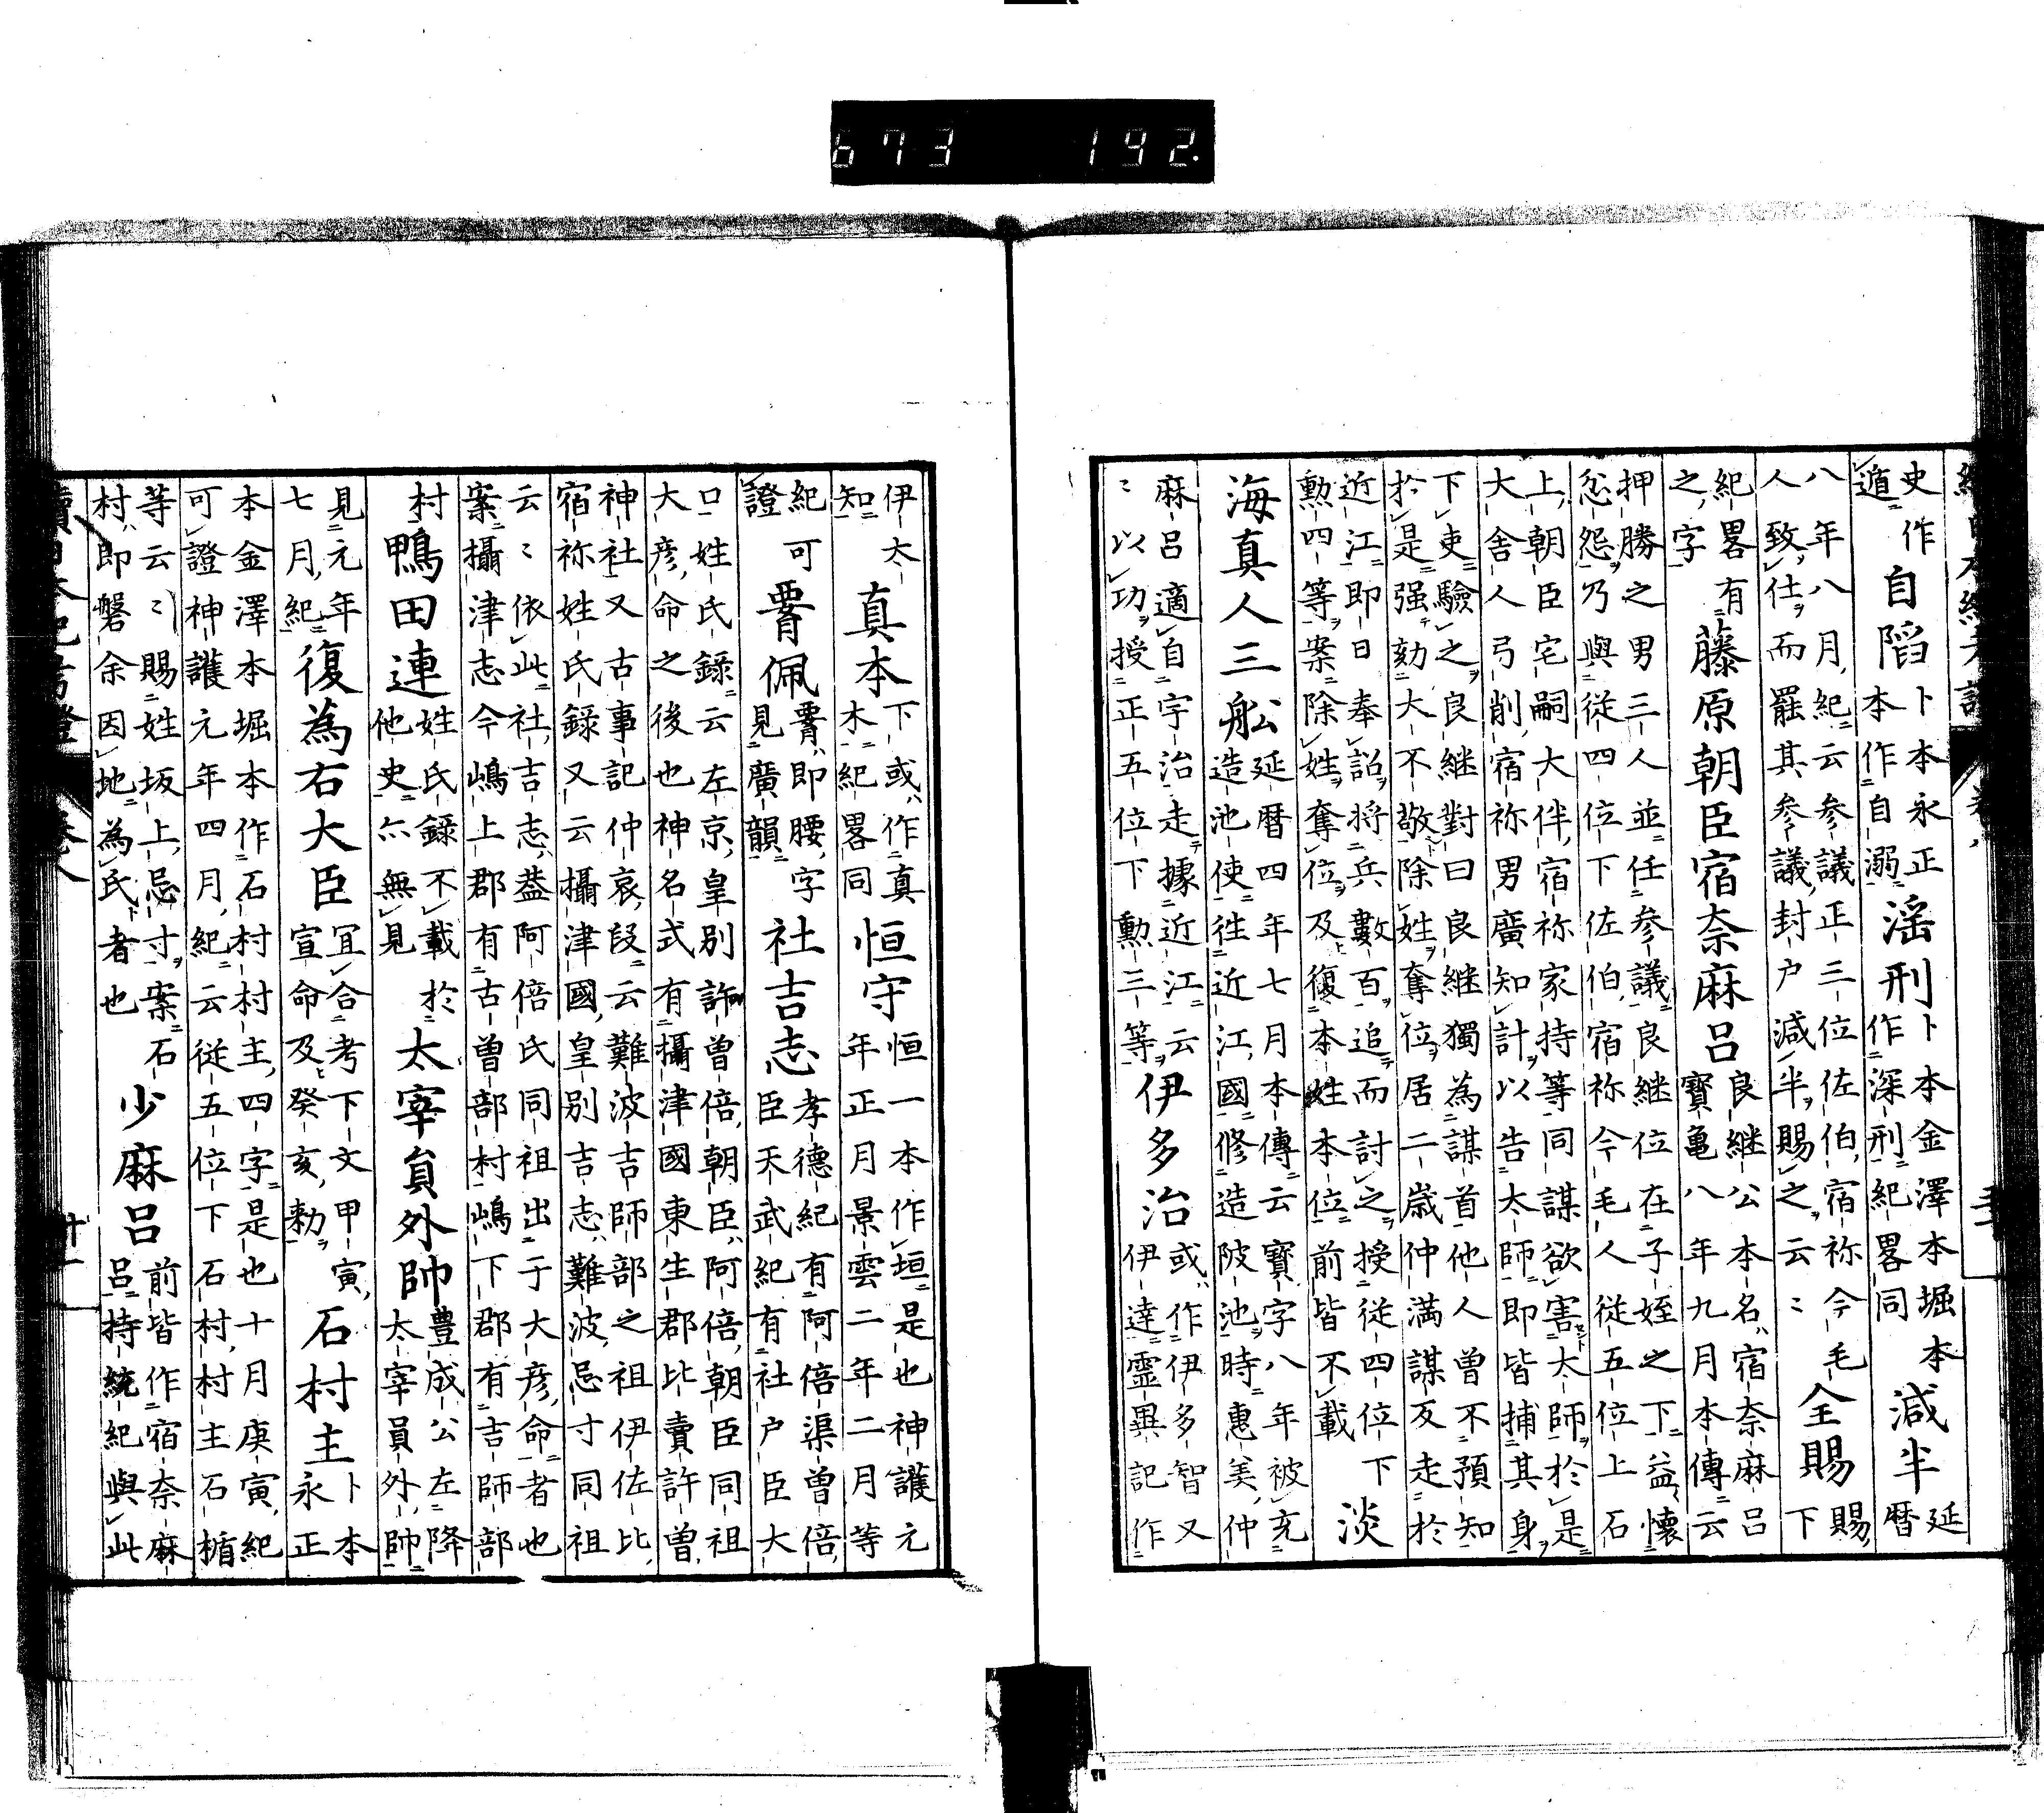 673 192.
史作
遁
自陷
卜本永正
本作自溺
淫刑
卜本金澤本堀本
作深刑紀畧同
減半
延
暦
八年八月紀云参議正三位佐伯宿祢今毛
人致仕而罷其参議封户減半賜之云〻
全賜
賜
下
紀畧有
之字
藤原朝臣宿奈麻呂
良継公本名宿奈麻呂
寳亀八年九月本傳云
押勝之男三人並任参議良継位在子姪之下益懐
忿怨乃與従四位下佐伯宿祢今毛人従五位上石
上朝臣宅嗣大伴宿祢家持等同謀欲害太師於是
大舎人弓削宿祢男廣知計以告太師即皆捕其身
下吏驗之良継對曰良継獨為謀首他人曽不預知
於是强劾大不敬除姓奪位居二歳仲満謀反走於
近江即日奉詔将兵數百追而討之授従四位下
勲四等案除姓奪位及復本姓本位前皆不載
淡
海真人三舩
延暦四年七月本傳云寳字八年被充
造池使徃近江國修造陂池時惠美仲
麻呂適自宇治走據近江云
〻以功授正五位下勲三等
伊多治
或作伊多智又
伊達靈異記作
伊太
知
真本
下或作真
木紀畧同
恒守
恒一本作垣是也神護元
年正月景雲二年二月等
紀可
證
䙅佩
䙅即腰字
見廣韻
社吉志
孝德紀有阿倍渠曽倍
臣天武紀有社户臣大
口姓氏録云左京皇別許曽倍朝臣阿倍朝臣同祖
大彦命之後也神名式有攝津國東生郡比賣許曽
神社又古事記仲哀段云難波吉師部之祖伊佐比
宿祢姓氏録又云攝津國皇別吉志難波忌寸同祖
云〻依此社吉志葢阿倍氏同祖出于大彦命者也
案攝津志今嶋上郡有古曽部村嶋下郡有吉師部
村
鴨田連
姓氏録不載於
他史亦無見
太宰員外帥
豊成公左降
太宰員外帥
見元年
七月紀
復為右大臣
冝合考下文甲寅
宣命及癸亥勅
石村村主
卜本
永正
本金澤本堀本作石村村主四字是也十月庚寅紀
可證神護元年四月紀云従五位下石村村主石楯
等云〻賜姓坂上忌寸案石
村即磐余因地為氏者也
少麻呂
前皆作宿奈麻
呂持統紀與此